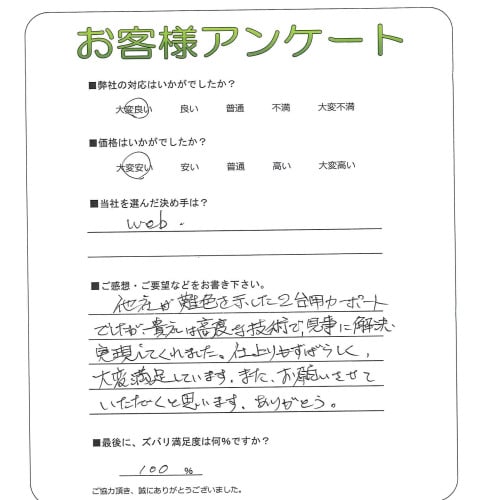 お客様アンケート
■弊社の対応はいかがでしたか？
大変良い 良い 普通 不満 大変不満
■価格はいかがでしたか？
大変安い 安い 普通 高い 大変高い
■当社を選んだ決め手は？
web.
■ご感想・ご要望などをお書き下さい。
他社が難色を示した2台用カーポート
でしたが、貴社は高度な技術で、見事に解決、
実現してくれました。仕上りもすばらしく、
大変満足しています。また、お願いさせて
いただくと思います。ありがとう。
■最後に、ズバリ満足度は何%ですか？
100 %
ご協力頂き、誠にありがとうございました。